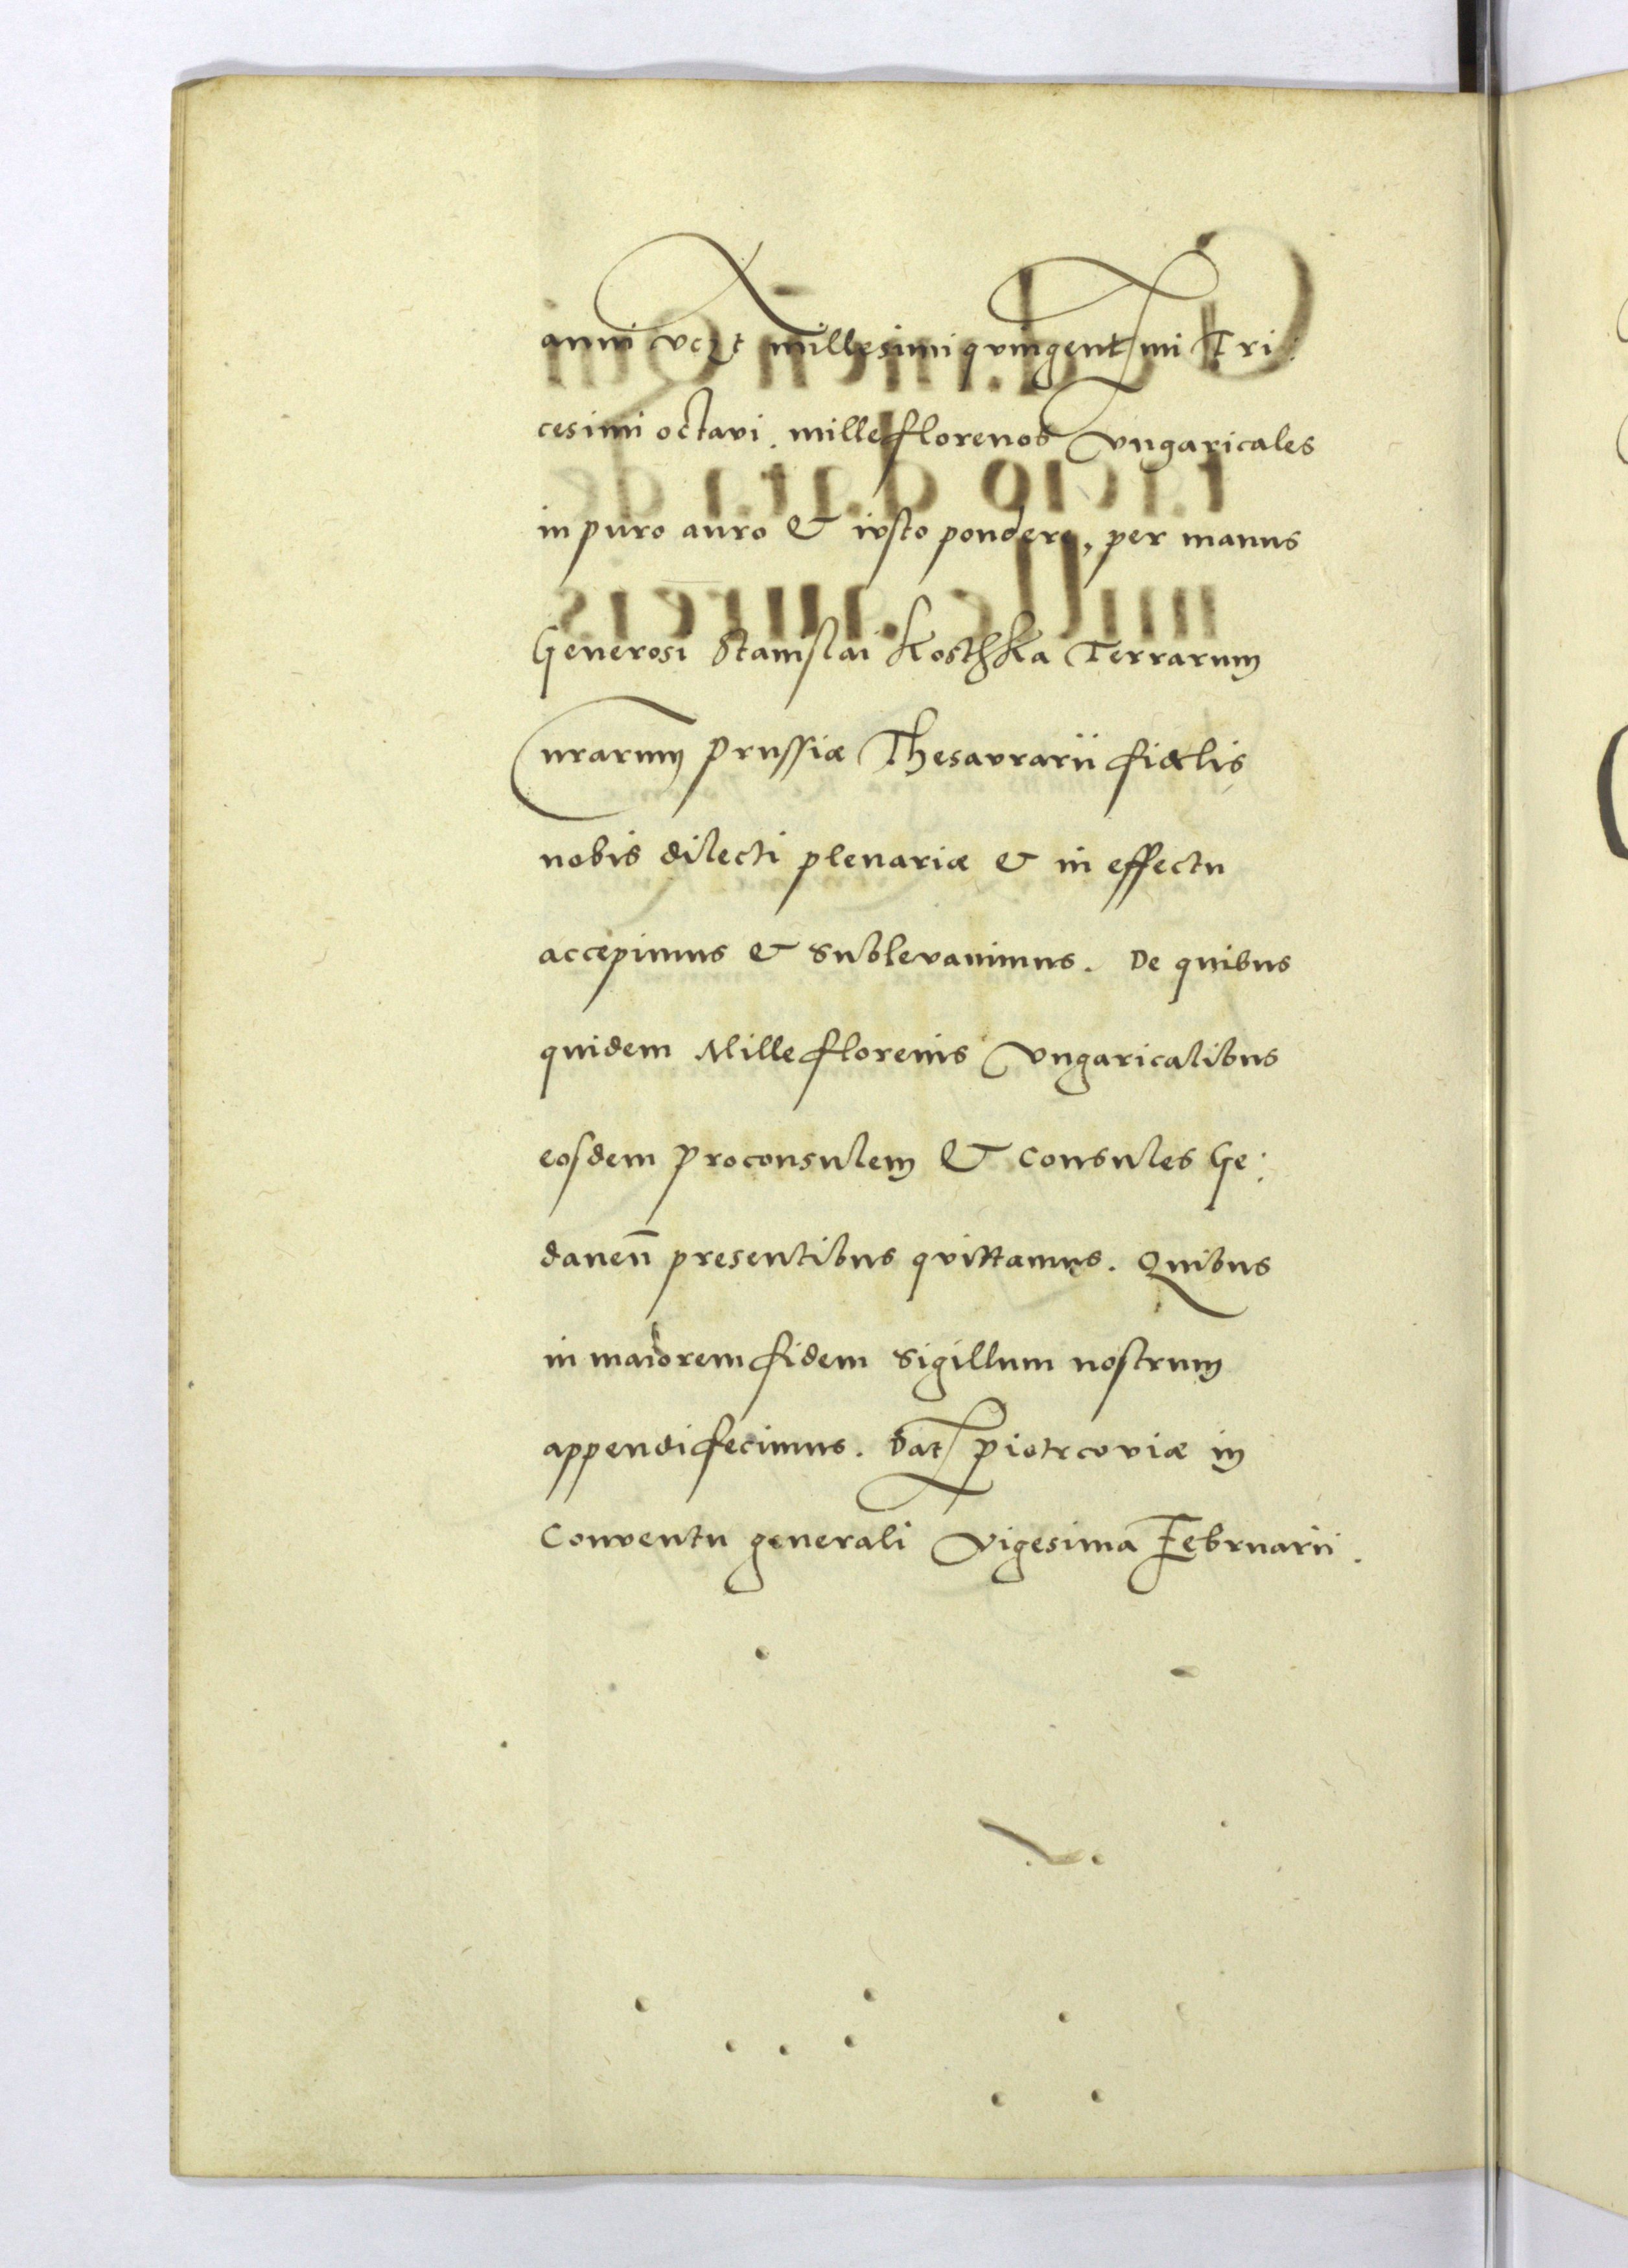 anni vczt millesimi qvingentmi Tri:
cesimi octavi. mille florenos Vngaricales
in puro auro & ivsto pondere, per manus
Generosi Stanislai Kosthka Terrarum
nrarum Prussiæ Thesavrarii fidelis
nobis dilecti plenariæ & in effectu
accepimus & Sublevavimus. De quibus
quidem Mille florenis Vngaricalibus
eosdem Proconsulem & Consules Ge:
danen̄ presentibus qvittamus. Quibus
in maiorem fidem Sigillum nostrum
appendi fecimus. Dat Piotrcoviæ in
Conventu generali Vigesima Februarii.